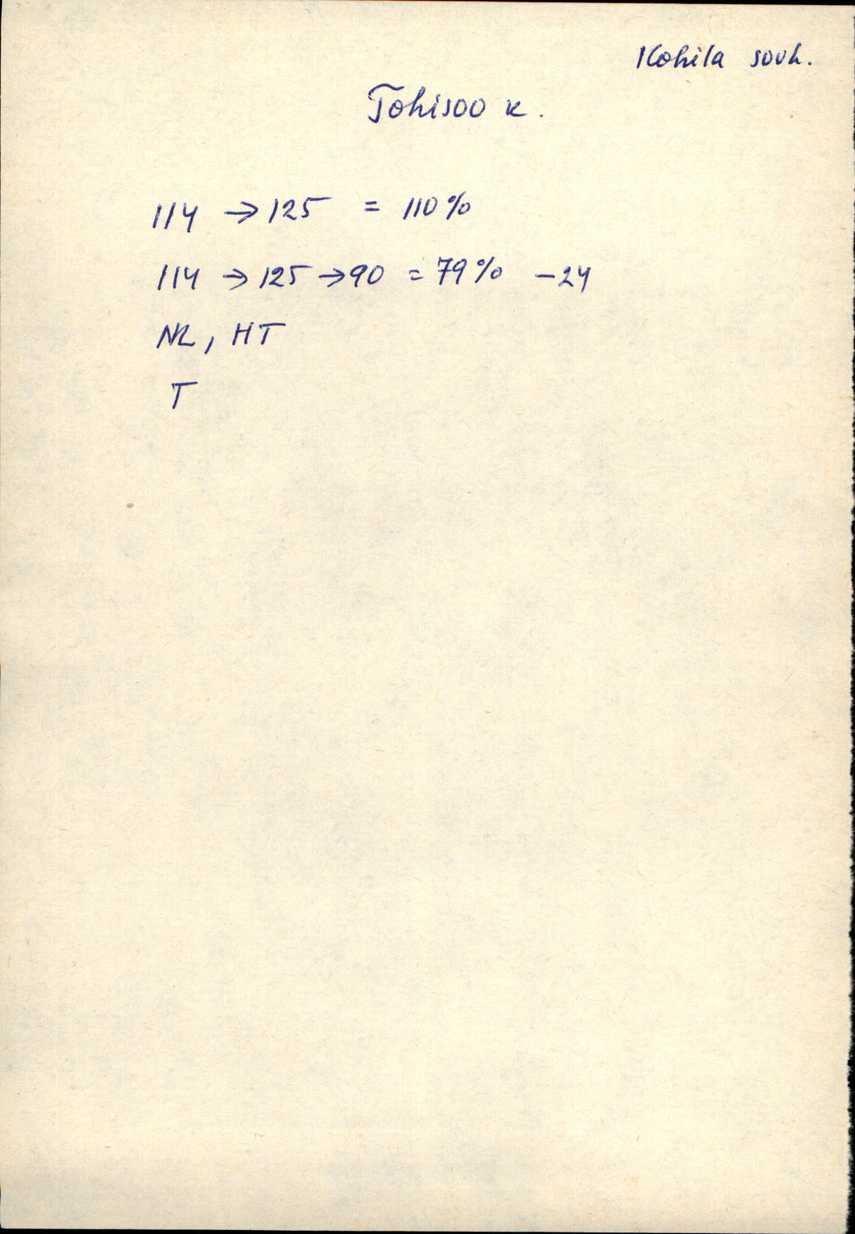 Kohila sovh.
Tohisoo k.
114 → 125 = 110%
114 → 125 → 90 = 79% -24
NL, HT
T